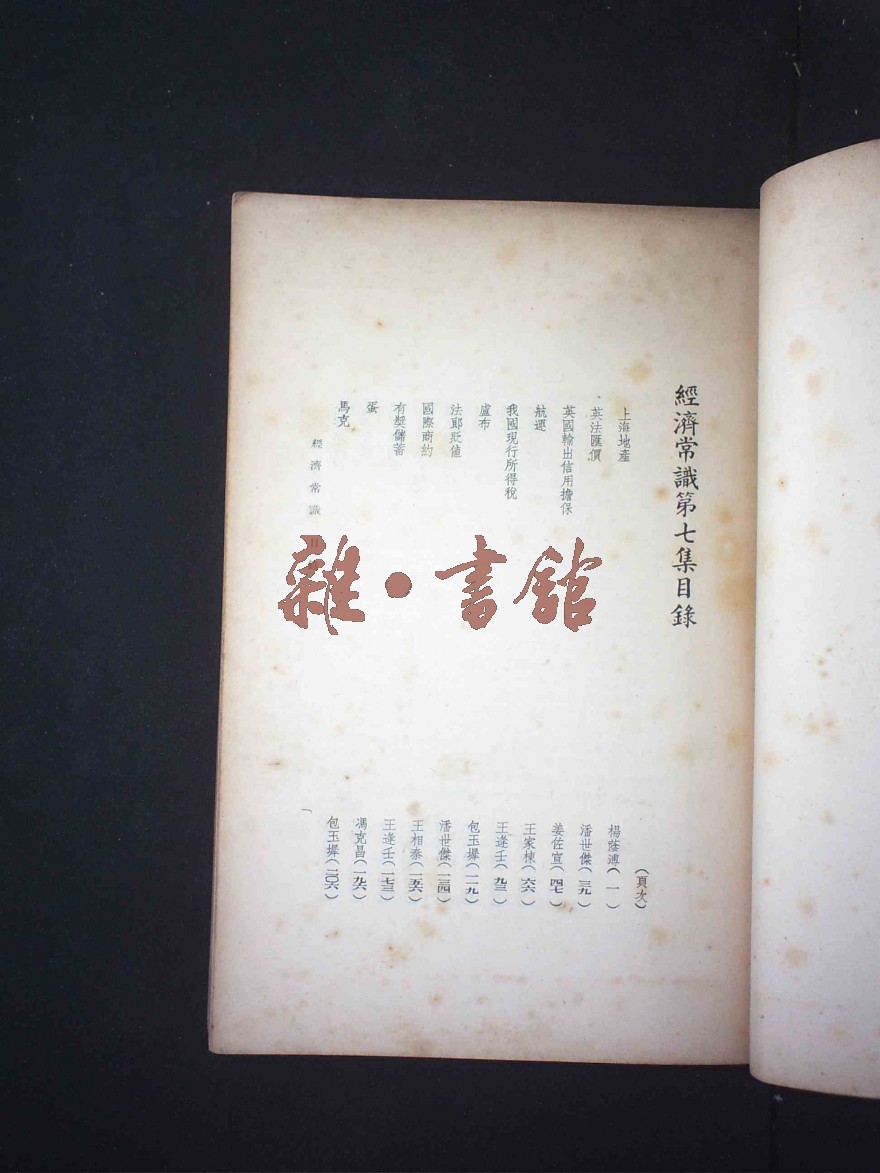 經濟常識第七集目錄
(頁次)
上海地產 楊蔭溥(一)
英法匯價 潘世傑(三九)
英國輸出信用擔保 姜佐宣(四七)
航運 王家棟(六六)
我國現行所得稅 王逢壬(九三)
盧布 包玉墀(一一九)
法郎貶值 潘世傑(一三四)
國際商約 王相秦(一五六)
有獎儲蓄 王逢壬(一七三)
蛋 馮克昌(一九六)
馬克 包玉墀(二〇六)
經濟常識 目
一
雜·書館